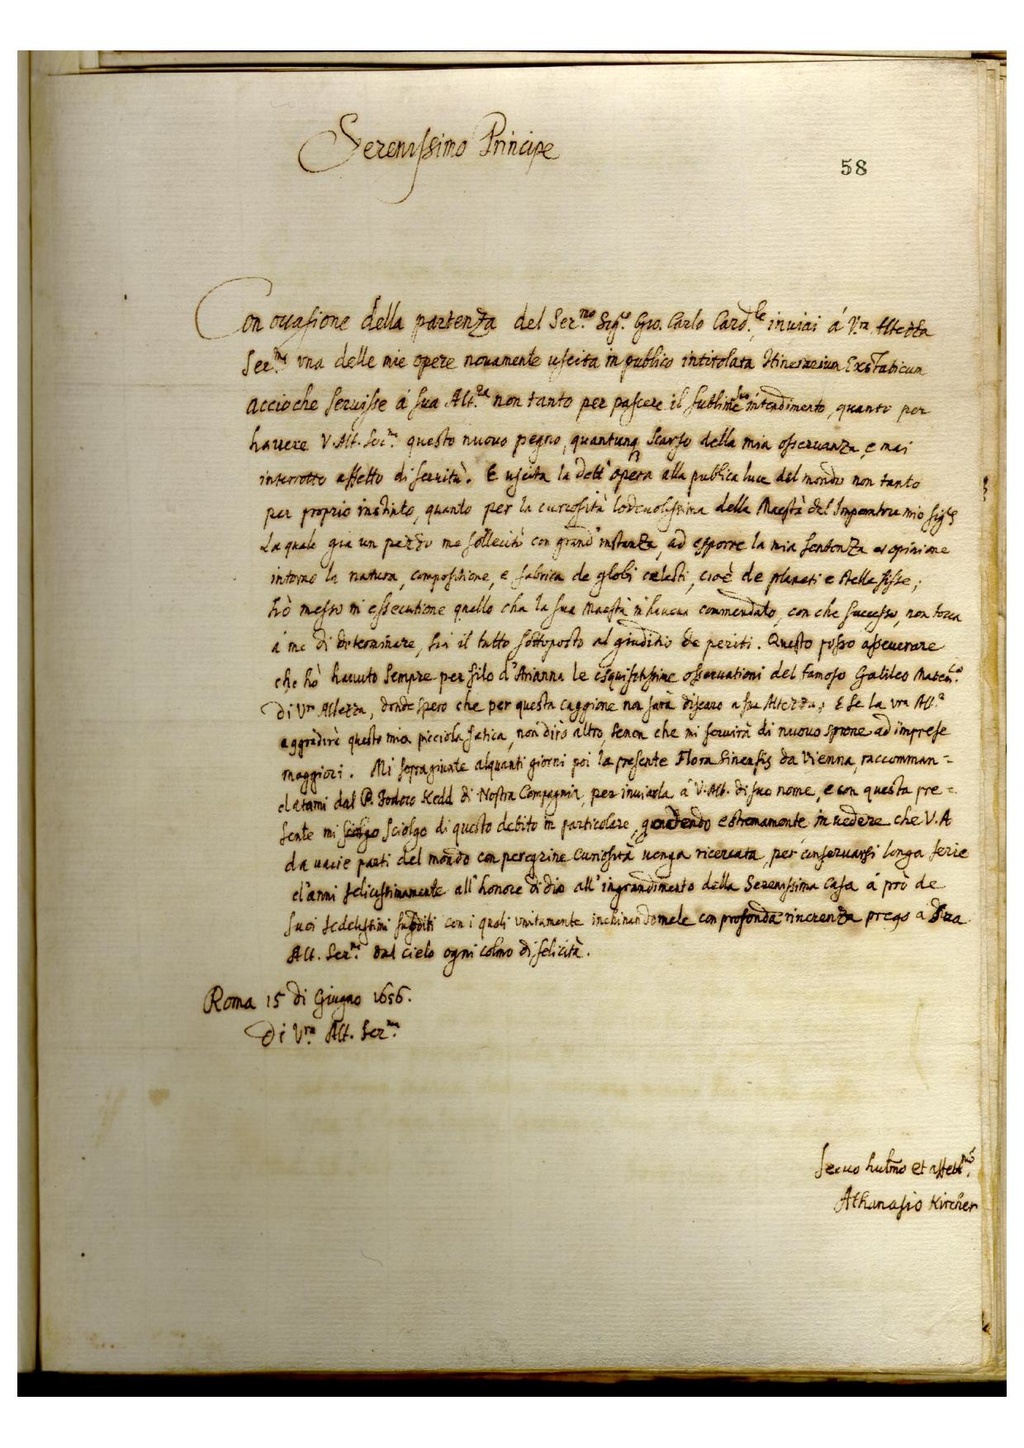 Serenissimo Principe
58
Con occasione della partenza del Ser.mo Sig.e Gio. Carlo Card.le inviai á V.ra Altezza
Ser.ma una delle mie opere novamente uscita in publico intitolata Itinerarium Extaticum
accioche servisse á sua Alt.za non tanto per pascere il sublime suo intendimento, quanto per
havere V. Alt. Ser.ma questo nuovo pegno, quantunq scarso della mia osservanza, e mai
interrotto affetto di servitù. E uscita la dett' opera alla publica luce del mondo non tanto
per proprio instinto, quanto per la curiosità lodevolissima della Maestà del Imperatore mio Sig.re
La quale gia un pezzo me sollecitò con grand' instanza, ad esporre la mia sentenza et opinione
intorno la natura, compositione, e fabrica de globi celesti, cioè de planeti e stelle fisse;
hò messo in essecutione quello cha la sua Maestà m'haveva commendato, con che successo, non tocca
á me di determinare, sia il tutto sottoposto al giuditio de periti. Questo posso asseverare
che hò havuto sempre per filo d'Arianna le esquisitissime osservationi del famoso Galileo Matem.co
di Vra Altezza, donde spero che per questa caggione non sarà discaro a sua Altezza; E se la vra Alt.a
aggradirà questa mia picciola fatica, non dirò altro, senon che mi servirà di nuovo sprone ad imprese
maggiori. Mi sopragiunte alquanti giorni poi la presente Flora Sinensis da Vienna, raccomman=
datami dal P. Jodoco Kedd di Nostra Compagnia, per inviarla á V. Alt. di suo nome, e con questa pre=
sente mi sciolgo sciolgo di questo debito in particolare, godendo estremamente in vedere che V. A
da varie parti del mondo con peregrine curiosità venga ricercata, per conservarsi longa serie
d'anni felicissimamente all' honore di dio all' ingrandimento della Serenissima Casa á prò de
suoi fedelissimi sudditi con i quali unitamente inchinandomele con profonda rincrenza prego á Sua
Alt. Ser.ma dal cielo ogni colmo di felicità.
Roma 15 di Giugno 1656.
di V.ra Alt. Ser.ma
Servo hulmo et affett.mo
Athanasio Kircher